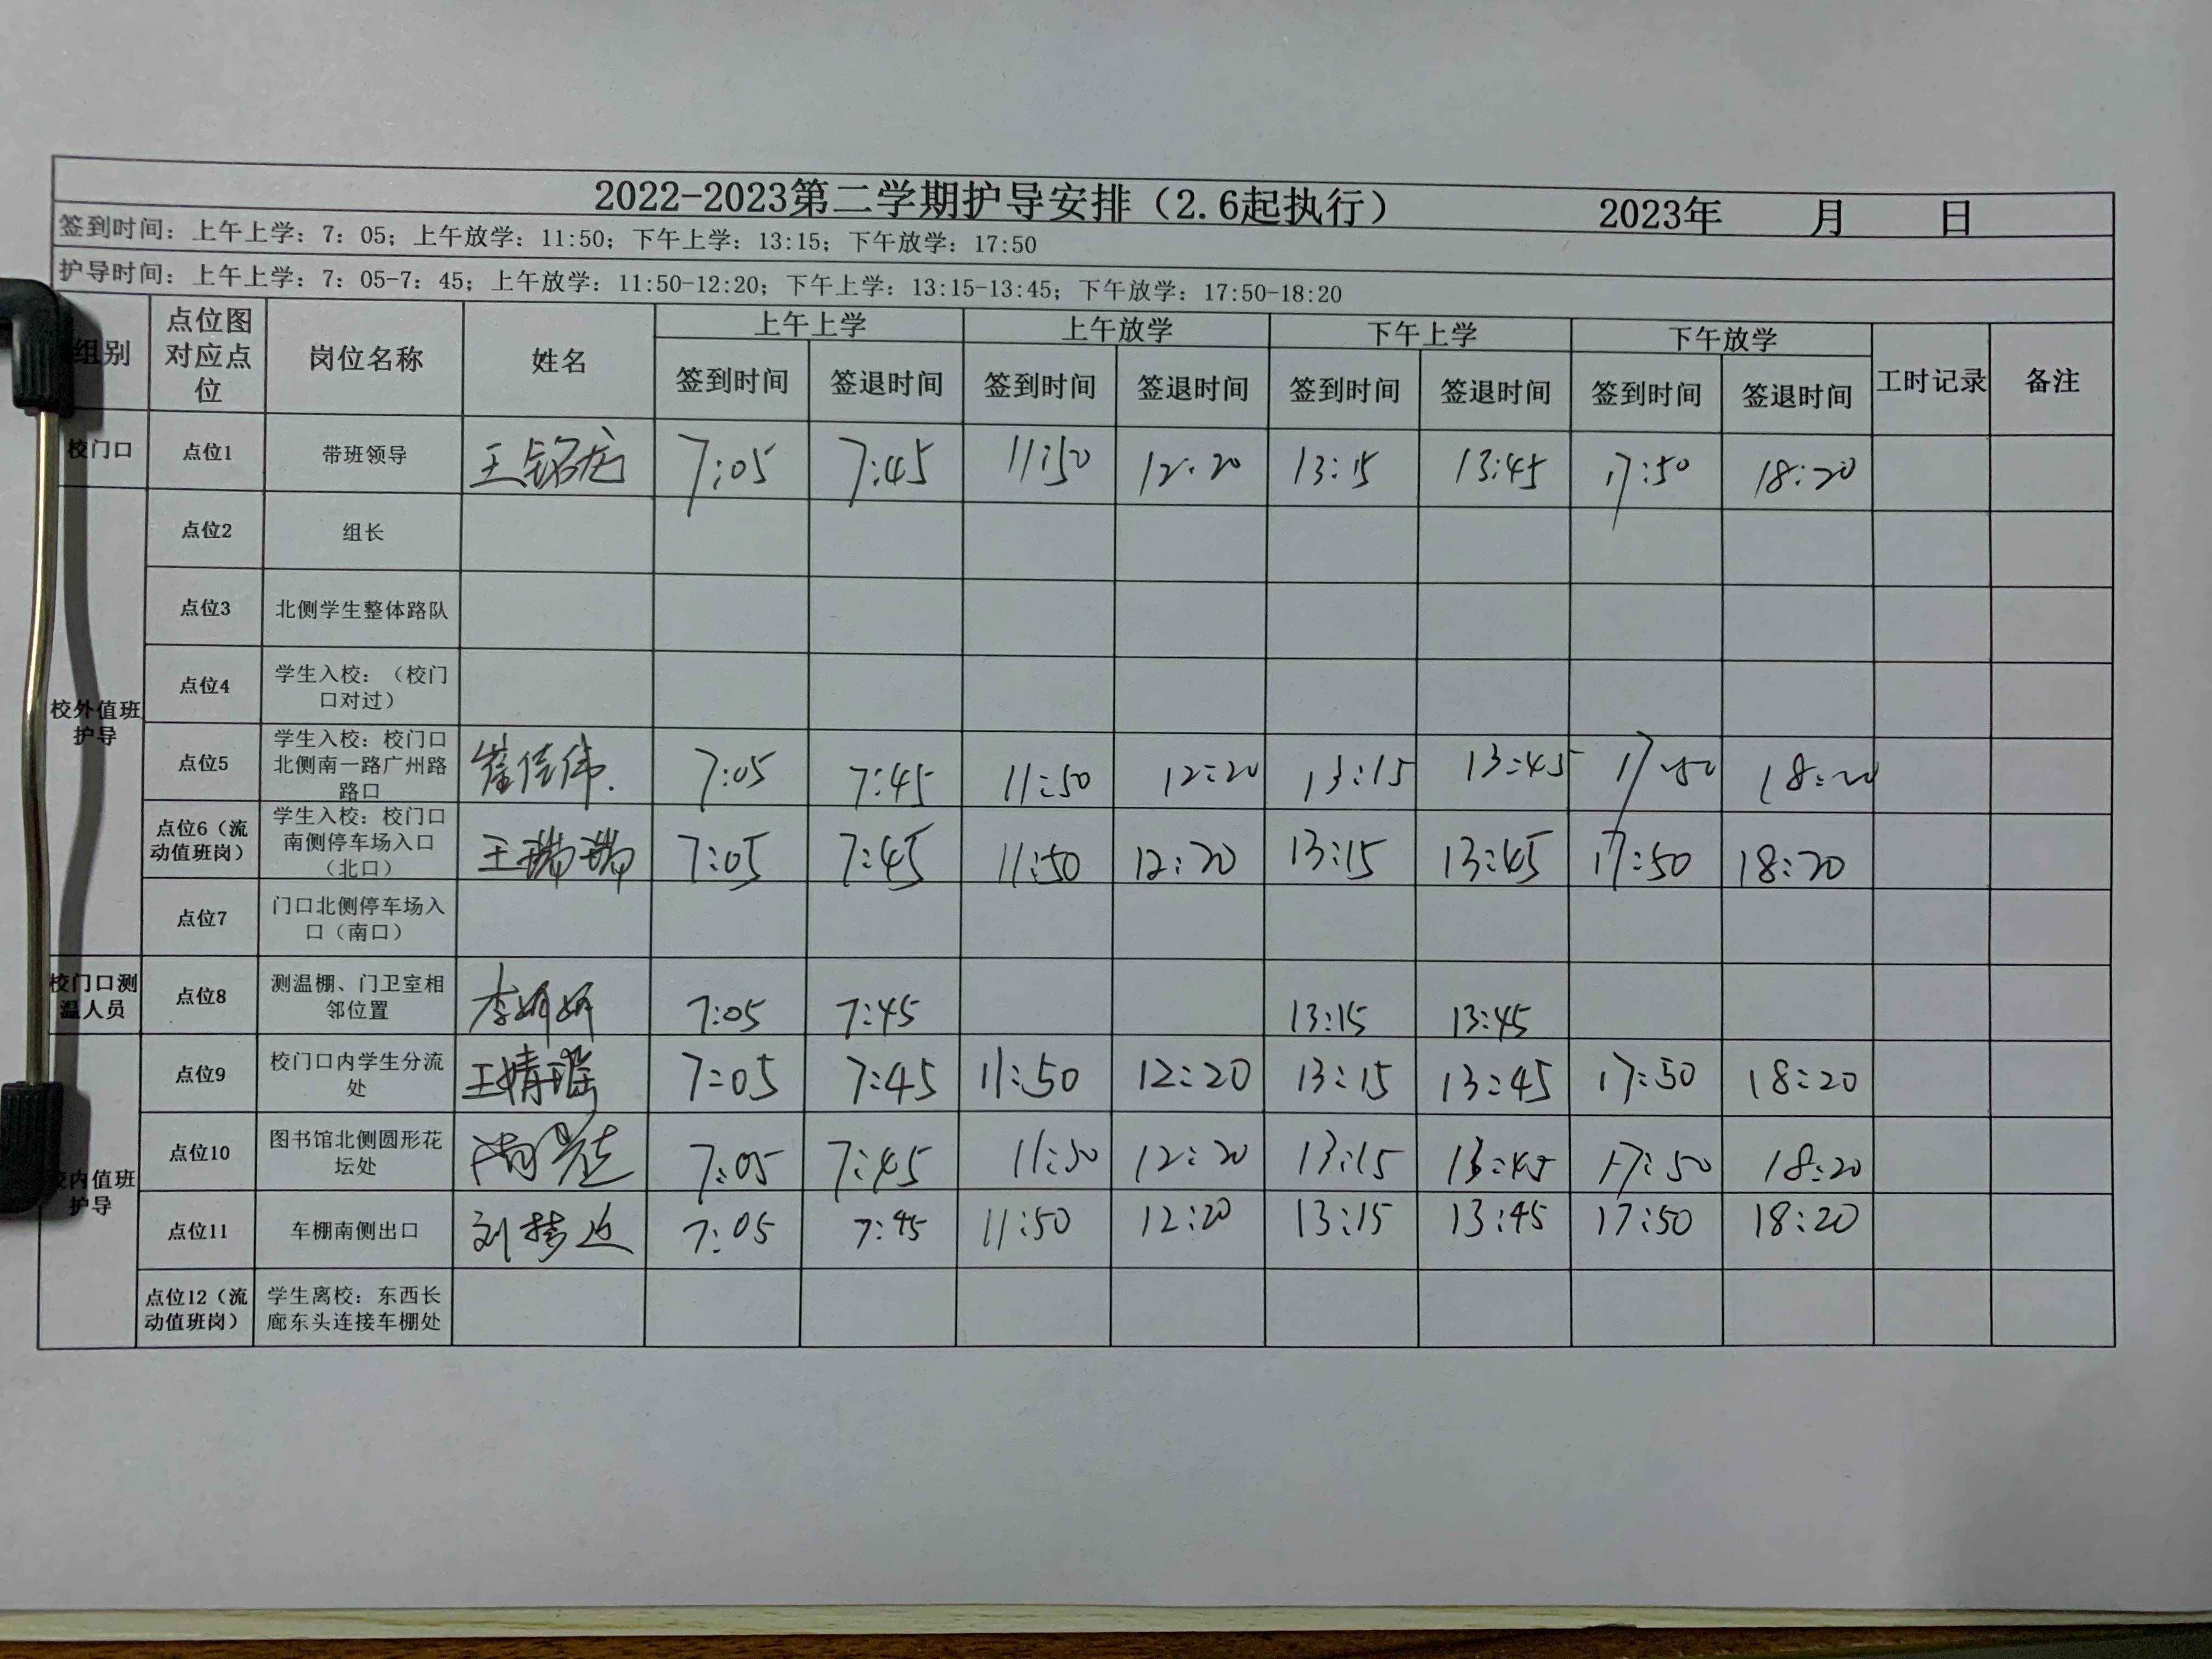 2022-2023第二学期护导安排（2.6起执行） 2023年 月 日
签到时间：上午上学：7：05；上午放学：11:50；下午上学：13:15；下午放学：17:50
护导时间：上午上学：7：05-7：45；上午放学：11:50-12:20；下午上学：13:15-13:45；下午放学：17:50-18:20
组别 点位图对应点位 岗位名称 姓名 上午上学 上午放学 下午上学 下午放学 工时记录 备注
签到时间 签退时间 签到时间 签退时间 签到时间 签退时间 签到时间 签退时间
校门口 点位1 带班领导 王铭龙 7:05 7:45 11:50 12:20 13:15 13:45 17:50 18:20
校外值班护导
点位2 组长
点位3 北侧学生整体路队
点位4 学生入校：（校门口对过）
点位5 学生入校：校门口北侧南一路广州路路口 崔佳伟 7:05 7:45 11:50 12:20 13:15 13:45 17:50 18:20
点位6（流动值班岗） 学生入校：校门口南侧停车场入口（北口） 王瑞瑞 7:05 7:45 11:50 12:20 13:15 13:45 17:50 18:20
点位7 门口北侧停车场入口（南口）
校门口测温人员 点位8 测温棚、门卫室相邻位置 李妍妍 7:05 7:45 13:15 13:45
校内值班护导
点位9 校门口内学生分流处 王婧瑶 7:05 7:45 11:50 12:20 13:15 13:45 17:50 18:20
点位10 图书馆北侧圆形花坛处 7:05 7:45 11:50 12:20 13:15 13:45 17:50 18:20
点位11 车棚南侧出口 刘 7:05 7:45 11:50 12:20 13:15 13:45 17:50 18:20
点位12（流动值班岗） 学生离校：东西长廊东头连接车棚处